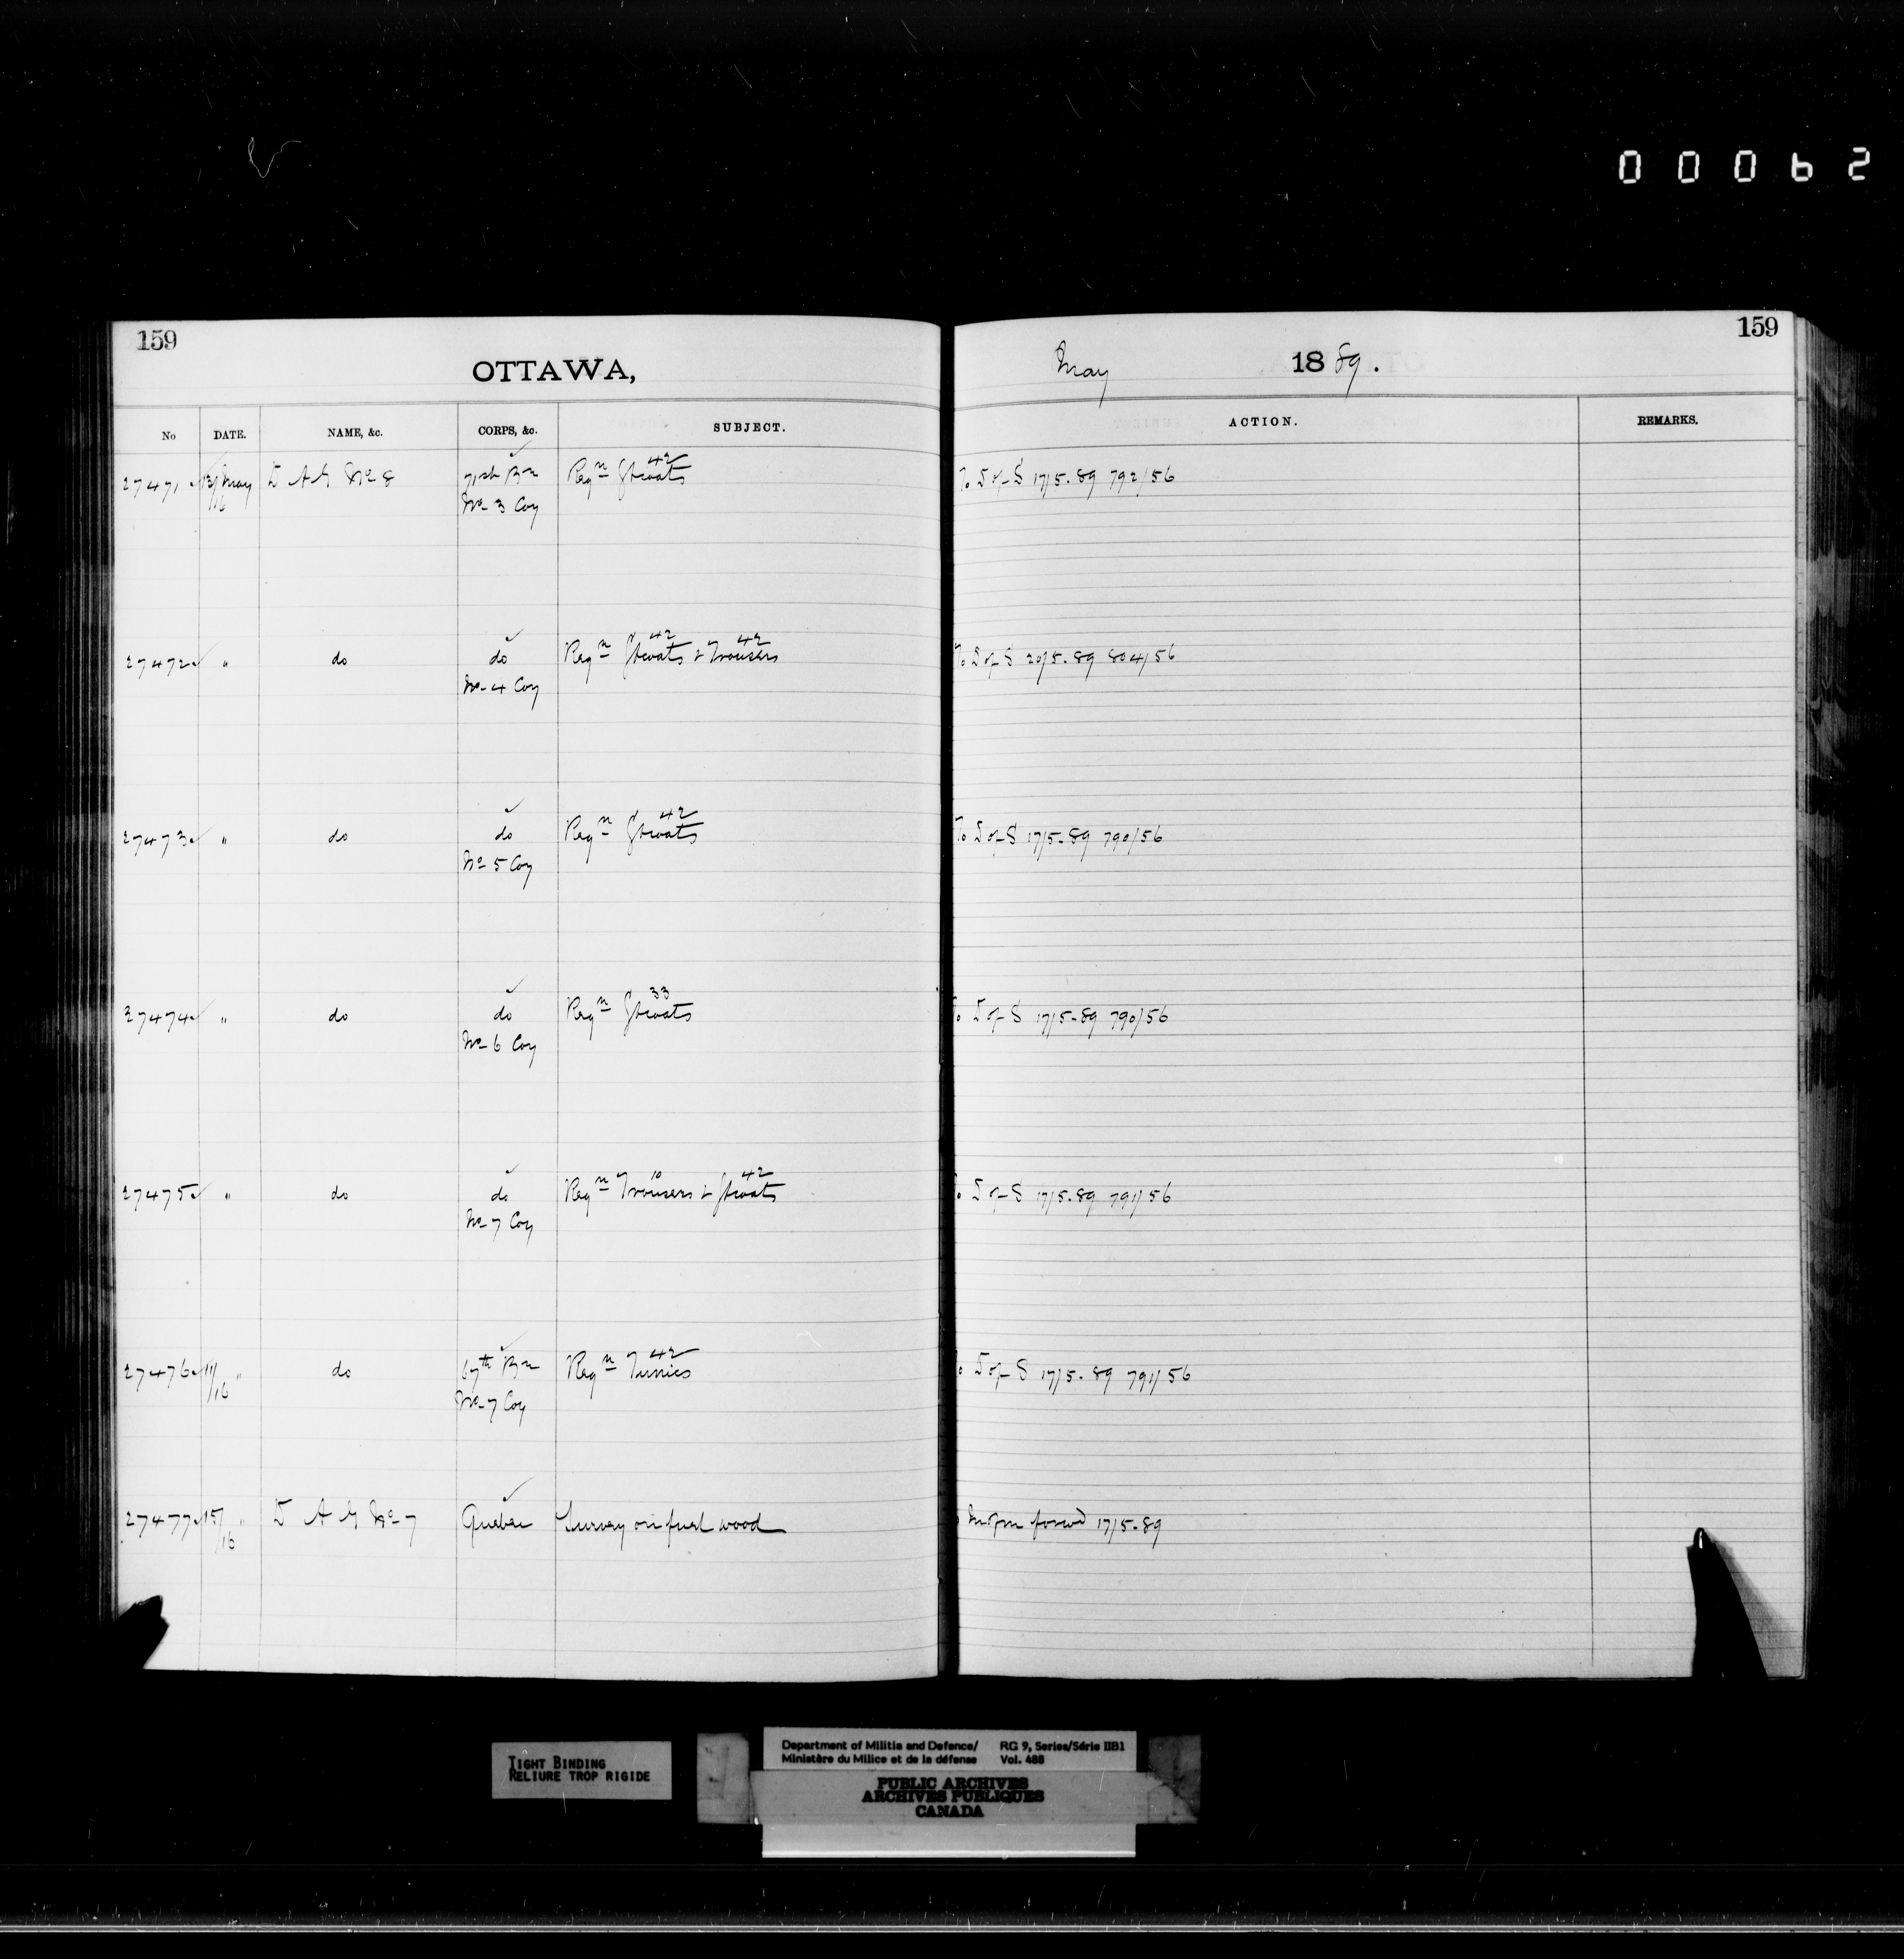 00062
159
OTTAWA,
May 1889.
159
No DATE. NAME, &c. CORPS, &c. SUBJECT. ACTION. REMARKS.
27471 13/16 May D A G No 8 71st Bn Reqn Gtcoats 42 To D of S 17/5.89 792/56
No 3 Coy
27472 " do do Reqn Gtcoats 42 & Trousers 42 To D of S 20/5.89 804/56
No 4 Coy
27473 " do do Reqn Gtcoats 42 To D of S 17/5.89 790/56
No 5 Coy
27474 " do do Reqn Gtcoats 33 To D of S 17/5.89 790/56
No 6 Coy
27475 " do do Reqn Trousers 10 & Gtcoats 42 To D of S 17/5.89 791/56
No 7 Coy
27476 11/16 " do 67th Bn Reqn Tunics 42 To D of S 17/5.89 791/56
No 7 Coy
27477 15/16 " D A G No 7 Quebec Survey on fuel wood forwd 17/5.89
TIGHT BINDING
RELIURE TROP RIGIDE
Department of Militia and Defence/ RG 9, Series/Série IIB1
Ministère du Milice et de la défense Vol. 488
PUBLIC ARCHIVES
ARCHIVES PUBLIQUES
CANADA